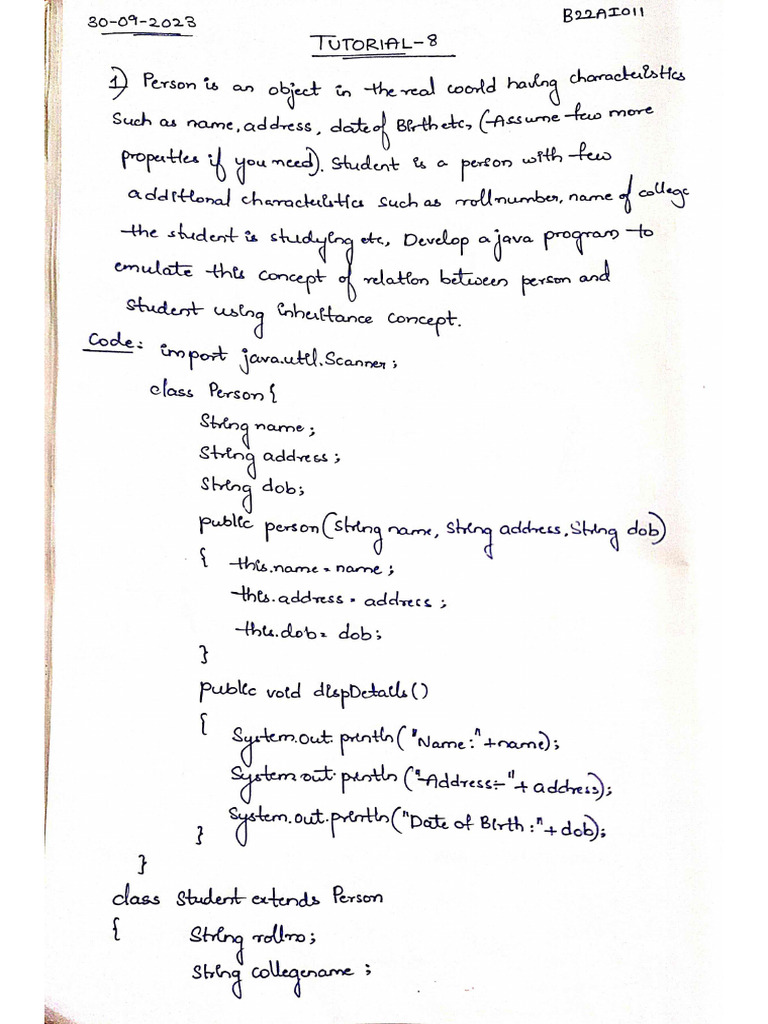 30-09-2023
B22AI011
TUTORIAL-8
1) Person is an object in the real world having characteristics
Such as name, address, date of Birth etc, (Assume few more
properties if you need). Student is a person with few
additional characteristics such as roll number, name of college
the student is studying etc, Develop a java program to
emulate this concept of relation between person and
student using inheritance concept.
Code: import java.util.Scanner;
class Person{
String name;
String address;
String dob;
public person(String name, String address, String dob)
{ this.name = name;
this.address = address;
this.dob = dob;
}
public void dispDetails()
{
System.out.println("Name:"+name);
System.out.println("Address:-"+address);
System.out.println("Date of Birth:"+dob);
}
}
class Student extends Person
{ String rollno;
String collegename;